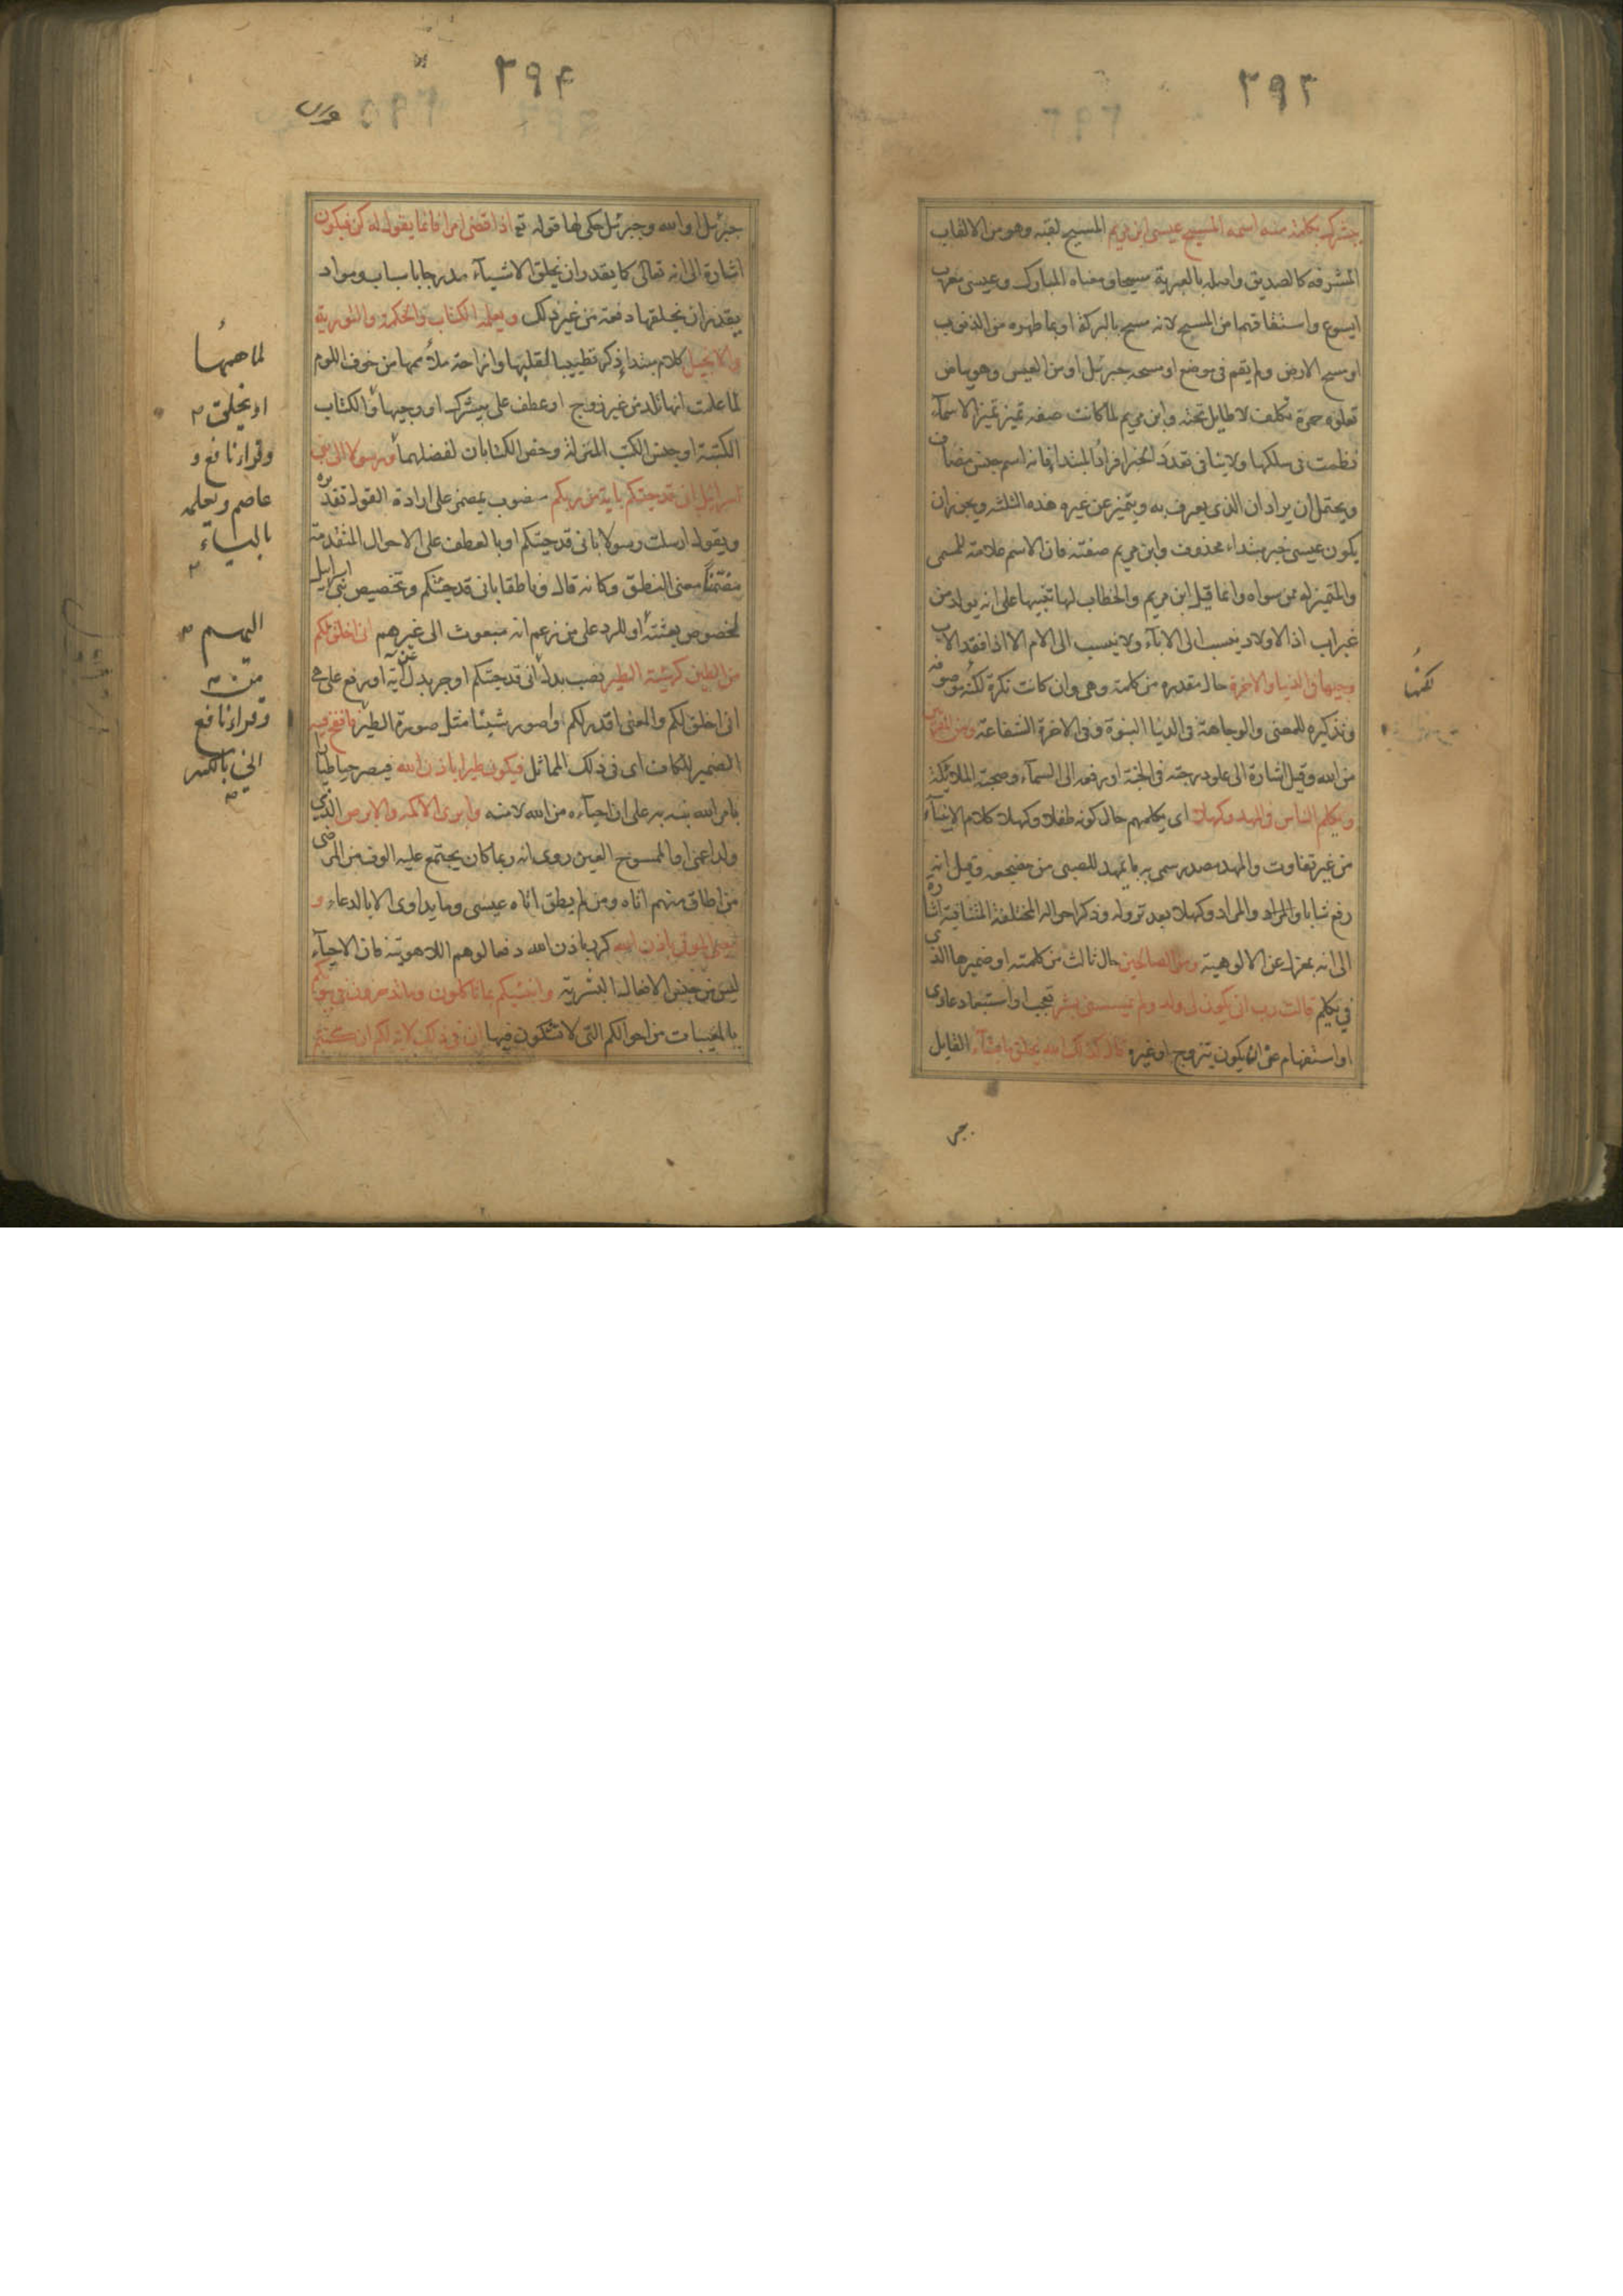 ٣٩٣
يبشرك بكلمة منه اسمه المسيح عيسى ابن مريم المسيح لقبه وهو من الالقاب
المشرفه كالصديق واصله بالعبرية مسيحا ومعناه المبارك وعيسى معرب
ايسوع واشتقاقهما من المسيح لانه مسح بالبركة او بما طهره من الذنوب
او مسح الارض ولم يقم فى موضع او مسحه جبرئيل او من العيس وهو بياض
تعلوه حمرة تكلف لا طايل تحته وابن مريم لما كانت صفه تميز تميز الاسمآء
نظمت فى سلكها ولا ينافى تعدد الخبر افراد المبتدا فانه اسم جنس مضاف
ويحتمل ان يراد ان الذى يعرف به ويتميز عن غيره هذه الثلثه ويجوز ان
يكون عيسى خبر مبتداء محذوف وابن مريم صفته فان الاسم علامة للمسمى
والمتميز له ممن سواه وانما قيل ابن مريم والخطاب لها تنبيها على انه يولد من
غير اب اذ الاولاد ينسب الى الابآء ولا ينسب الى الام الا اذا فقد الاب
وجيها فى الدنيا والاخرة حال مقدره من كلمة وهى وان كانت نكرة لكنه موصوفه
وتذكيره للمعنى والوجاهة فى الدنيا النبوة وفى الاخرة الشفاعة ومن المقربين
من الله وقيل اشارة الى علو درجته فى الجنة او رفعه الى السمآء وصحبته الملائكة
ويكلم الناس فى المهد وكهلا اى يكلمهم حال كونه طفلا وكهلا كلام الانبيآء
من غير تفاوت والمهد مصدر سمى به ما يمهد للصبى من مضجعه وقيل انه
رفع شابا والمراد وكهلا بعد نزوله وذكر احواله المختلفة المتنافية اشارة
الى انه بمعزل عن الالوهية ومن الصالحين حال ثالث من كلمته او ضميرها الذى
فى يكلم قالت رب انى يكون لى ولد ولم يمسسنى بشر تعجب او استبعاد عادى
او استفهام عن ان يكون بتزوج او غيره قال كذلك الله يخلق ما يشآء القايل
جبر
لكنها
٣٩٤
جبرئيل او الله وجبرئيل حكى لها قوله تع اذا قضى امرا فانما يقول له كن فيكون
اشارة الى انه تعالى كما يقدر ان يخلق الاشيآء مدرجا باسباب ومواد
يقدر ان يخلقها دفعة من غير ذلك ويعلمه الكتاب والحكمة والتورية
والانجيل كلام مبتدا ذكر تطييبا لقلبها وازاحة عن خوف اللوم
لما علمت انها تلد من غير زوج او عطف على يبشرك او وجيها والكتاب
الكتبة او جنس الكتب المنزلة وخص الكتابان لفضلهما ورسولا الى بنى
اسرائيل انى قد جئتكم باية من ربكم منصوب بمضمر على ارادة القول تقديره
ويقول ارسلت رسولا بانى قد جئتكم او بالعطف على الاحوال المتقدمة
مضمنا معنى النطق وكانه قال وناطقا بانى قد جئتكم وتخصيص بنى اسرايل
لخصوص بعثته او للرد على من زعم انه مبعوث الى غيرهم انى اخلق لكم
من الطين كهيئة الطير نصب بدل انى قد جئتكم او جر بدل آية او رفع على هى
انى اخلق لكم والمعنى اقدر لكم واصور شيئا مثل صورة الطير فانفخ فيه
الضمير للكاف اى فى ذلك المماثل فيكون طيرا باذن الله فيصير حيا طيارا
بامر الله نبه به على ان احياءه من الله لا منه وابرئ الاكمه والابرص الذى
ولد اعمى او الممسوح العين روى انه ربما كان يجتمع عليه الوف من المرضى
من اطاق منهم اتاه ومن لم يطق اتاه عيسى وما يداوى الا بالدعاء و
احيى الموتى باذن الله كرر باذن الله دفعا لوهم اللاهوتية فان الاحيآء
ليس من جنس الافعال البشرية وانبئكم بما تاكلون وما تدخرون فى بيوتكم
بالمغيبات من احوالكم التى لا تشكون فيها ان فى ذلك لاية لكم ان كنتم
لما همها
او يخلق
وقراء نافع و
عاصم ويعلمه
باليآء
اليهم
وقراء نافع
انى بالكسر